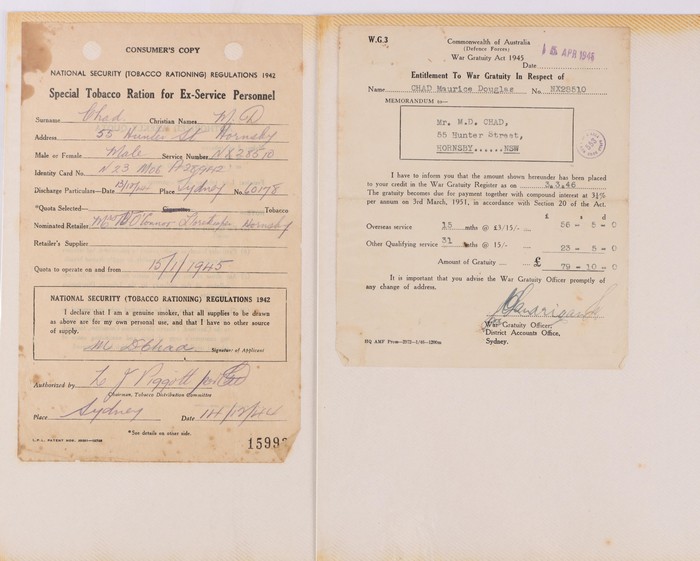 CONSUMER'S COPY
NATIONAL SECURITY (TOBACCO RATIONING) REGULATIONS 1942
Special Tobacco Ration for Ex-Service Personnel
Surname Chad Christian Names M. D
Address 55 Hunter St Hornsby
Male or Female Male Service Number NX28510
Identity Card No.
Discharge Particulars—Date Place Sydney No. 60178
*Quota Selected— Cigarettes Tobacco
Nominated Retailer O'Connor Hornsby
Retailer's Supplier
Quota to operate on and from 15/1/1945
NATIONAL SECURITY (TOBACCO RATIONING) REGULATIONS 1942
I declare that I am a genuine smoker, that all supplies to be drawn
as above are for my own personal use, and that I have no other source
of supply.
M DChad Signature of Applicant
Authorized by Piggott
Chairman, Tobacco Distribution Committee
Place Sydney Date 14/12/44
*See details on other side.
W.G.3
Commonwealth of Australia
(Defence Forces)
War Gratuity Act 1945
Date APR 1946
Entitlement To War Gratuity In Respect of
Name CHAD Maurice Douglas No. NX28510
MEMORANDUM to—
Mr. W.D. CHAD,
55 Hunter Street,
HORNSBY......NSW
I have to inform you that the amount shown hereunder has been placed
to your credit in the War Gratuity Register as on 3.3.46
The gratuity becomes due for payment together with compound interest at 3¼%
per annum on 3rd March, 1951, in accordance with Section 20 of the Act.
£ s d
Overseas service 15 mths @ £3/15/- 56 - 5 - 0
Other Qualifying service 31 mths @ 15/- 23 - 5 - 0
Amount of Gratuity £ 79 - 10 - 0
It is important that you advise the War Gratuity Officer promptly of
any change of address.
War Gratuity Officer,
District Accounts Office,
Sydney.